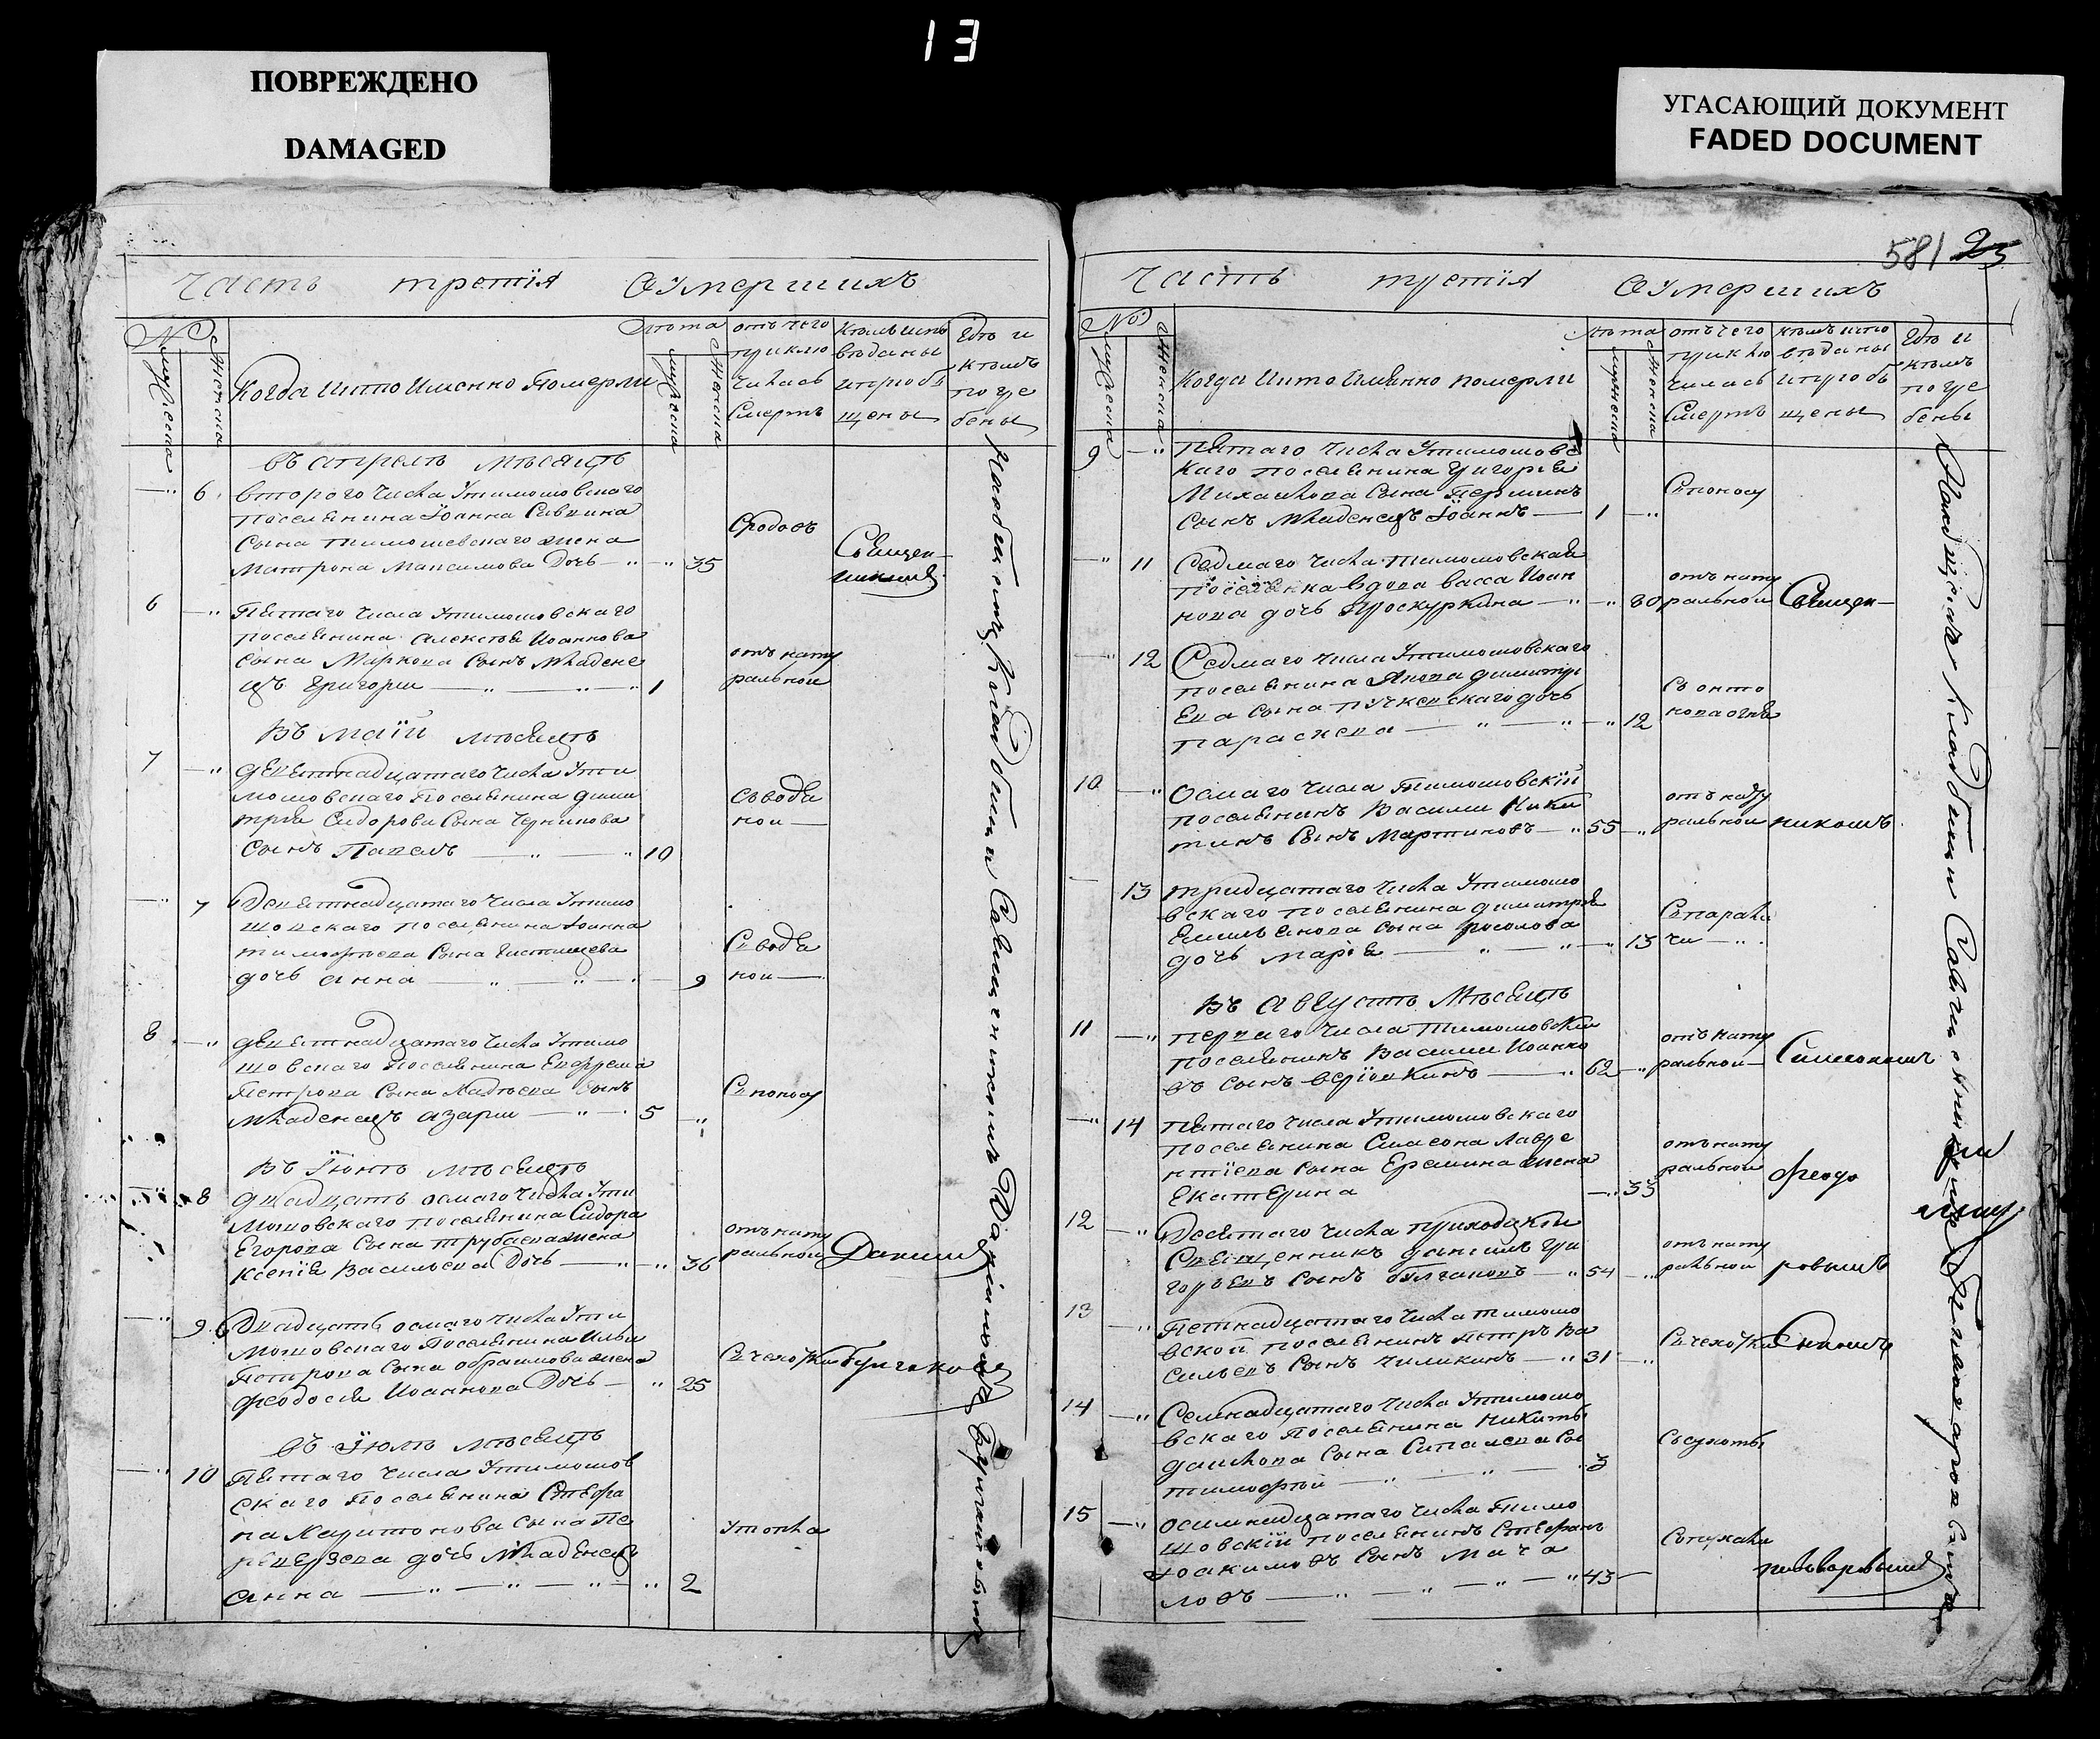 13
ПОВРЕЖДЕНО
DAMAGED
УГАСАЮЩИЙ ДОКУМЕНТ
FADED DOCUMENT
Часть третія О Умершихъ
№
мужеска
женска
Когда и кто именно померли
Лѣта
мужеска
женска
отъ чего
приклю
чилась
смерть
кѣмъ испо
вѣданы
и приоб
щены
Гдѣ и
кѣмъ
погре
бены
въ апрелѣ мѣсяцѣ
6
второго числа Утимошовскаго
поселянина Іоанна Саввина
сына тимошевскаго жена
матрона максимова дочь 35
сродовъ
Священ
никомъ
6
пятаго числа Утимошовскаго
поселянина алексѣя Иоаннова
сына Маркова сынъ младене
цъ Григорий 1
отъ нату
ральной
Въ маїй мѣсяцѣ
7
девятнадцатаго числа Ути
мошовскаго Поселянина Дими
трия Сидорова сына Черникова
сынъ Павелъ 10
съ водя
ной
7
Девятнадцатаго числа Утимо
шовскаго поселянина Іоанна
тимофѣева сына Чистищева
дочь анна 9
съ водя
ной
8
девятнадцатаго числа Утимо
шовскаго Поселянина Ефрема
Петрова сына сынъ
младенецъ азарий 5
съ поносу
Въ Іюнѣ мѣсяцѣ
8
двадцать осмаго числа Ути
мошовскаго поселянина Сидора
Егорова сына трубаева жена
ксенія Васильева дочь 36
отъ нату
ральной
Даниил
9
Двадцать осмаго числа Ути
мошовскаго Поселянина Ильи
Петрова сына абрамова жена
феодосия Иоаннова дочь 25
съ чехотки
булгаковы
въ Іюлѣ мѣсяцѣ
10
Пятаго числа Утимошов
скаго Поселянина Стефа
на Харитонова сына Пе
реверзева дочь младенецъ
анна 2
утопла
На обыкновенномъ кладбищѣ Священникомъ Даніиломъ Булгаковымъ
581 25
Часть третія О Умершихъ
№
мужеска
женска
Когда и кто именно померли
лѣта
мужеска
женска
отъ чего
приклю
чилась
смерть
кѣмъ испо
вѣданы
и приоб
щены
Гдѣ и
кѣмъ
погре
бены
9
пятаго числа Утимошовс
каго поселянина Григорія
Михайлова сына Першина
сынъ младенецъ Іоаннъ 1
съ поносу
11
Седмаго числа тимошовская
поселянка вдова васса Иоан
нова дочь Проскурина 80
отъ нату
ральной
Священ
12
Седмаго числа Утимошовскаго
поселянина Якова димитри
ева сына дочь
параскева 12
съ онто
нова огня
10
Осмаго числа тимошовскій
поселянинъ Василий Ники
тинъ сынъ Мартиновъ 55
отъ нату
ральной
никомъ
13
тридцатаго числа Утимошо
вскаго поселянина димитрія
Емильянова сына росолова
дочь марія 13
съ парали
чи
Въ августѣ мѣсяцѣ
11
перваго числа тимошовский
поселянинъ Василий Иоанно
въ сынъ 62
отъ нату
ральной
Симеономъ
14
пятаго числа Утимошовскаго
поселянина Самсона Лавре
нтіева сына Еремина жена
Екатерина 33
отъ нату
ральной
феодо
12
Десятаго числа приходский
Священникъ Даниилъ Гри
горьевъ сынъ булгаковъ 54
отъ нату
ральной
ровымъ
13
Пятнадцатаго числа тимошо
вской поселянинъ Петръ Ва
сильевъ сынъ Чиликинъ 31
съ чехотки
14
Семнадцатаго числа Утимошо
вскаго Поселянина Никиты
данилова сына сы
тимофѣй 3
съ сухоты
15
осимнадцатаго числа тимо
шовскій поселянинъ Стефанъ
Іоакимовъ сынъ мача
ловъ 43
съ пухли
пивоваровымъ
На кладбищѣ